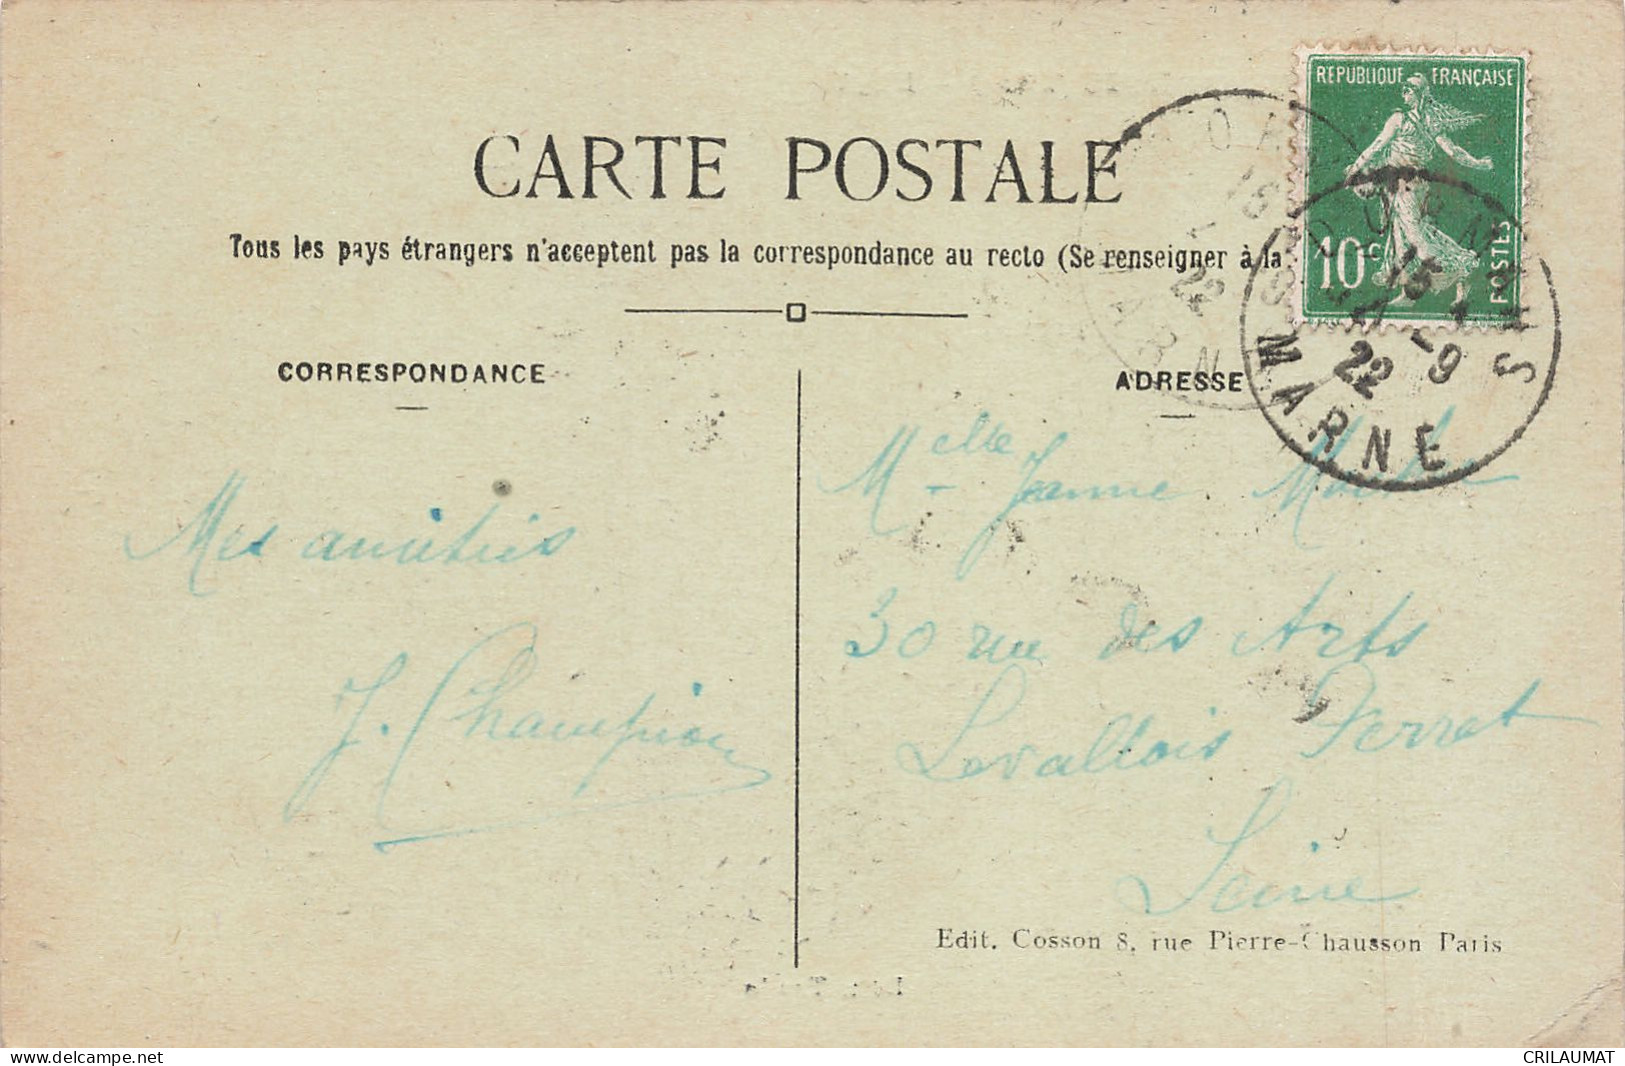 RÉPUBLIQUE FRANÇAISE
10c POSTES
CARTE POSTALE
Tous les pays étrangers n'acceptent pas la correspondance au recto (Se renseigner à la
15
22
-9
MARNE
CORRESPONDANCE
ADRESSE
Mes amitiés
J. Champion
Melle Jeanne
30 rue des Arts
Levallois Perret
Seine
Edit. Cosson 8, rue Pierre-Chausson Paris
delcampe.net
CRILAUMAT